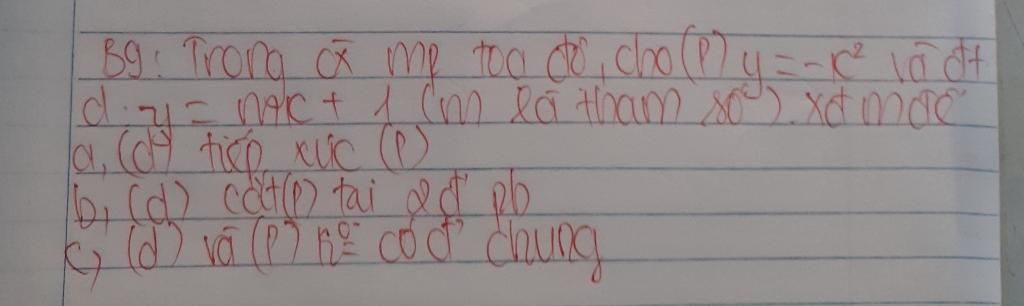 B9: Trong cx mp toạ độ, cho (P) y = -x² và đt
d: y = mx + 1 (m là tham số). xđ m để
a, (d) tiếp xúc (P)
b, (d) cắt (P) tại 2 đ' pb
c, (d) và (P) ko có đ' chung